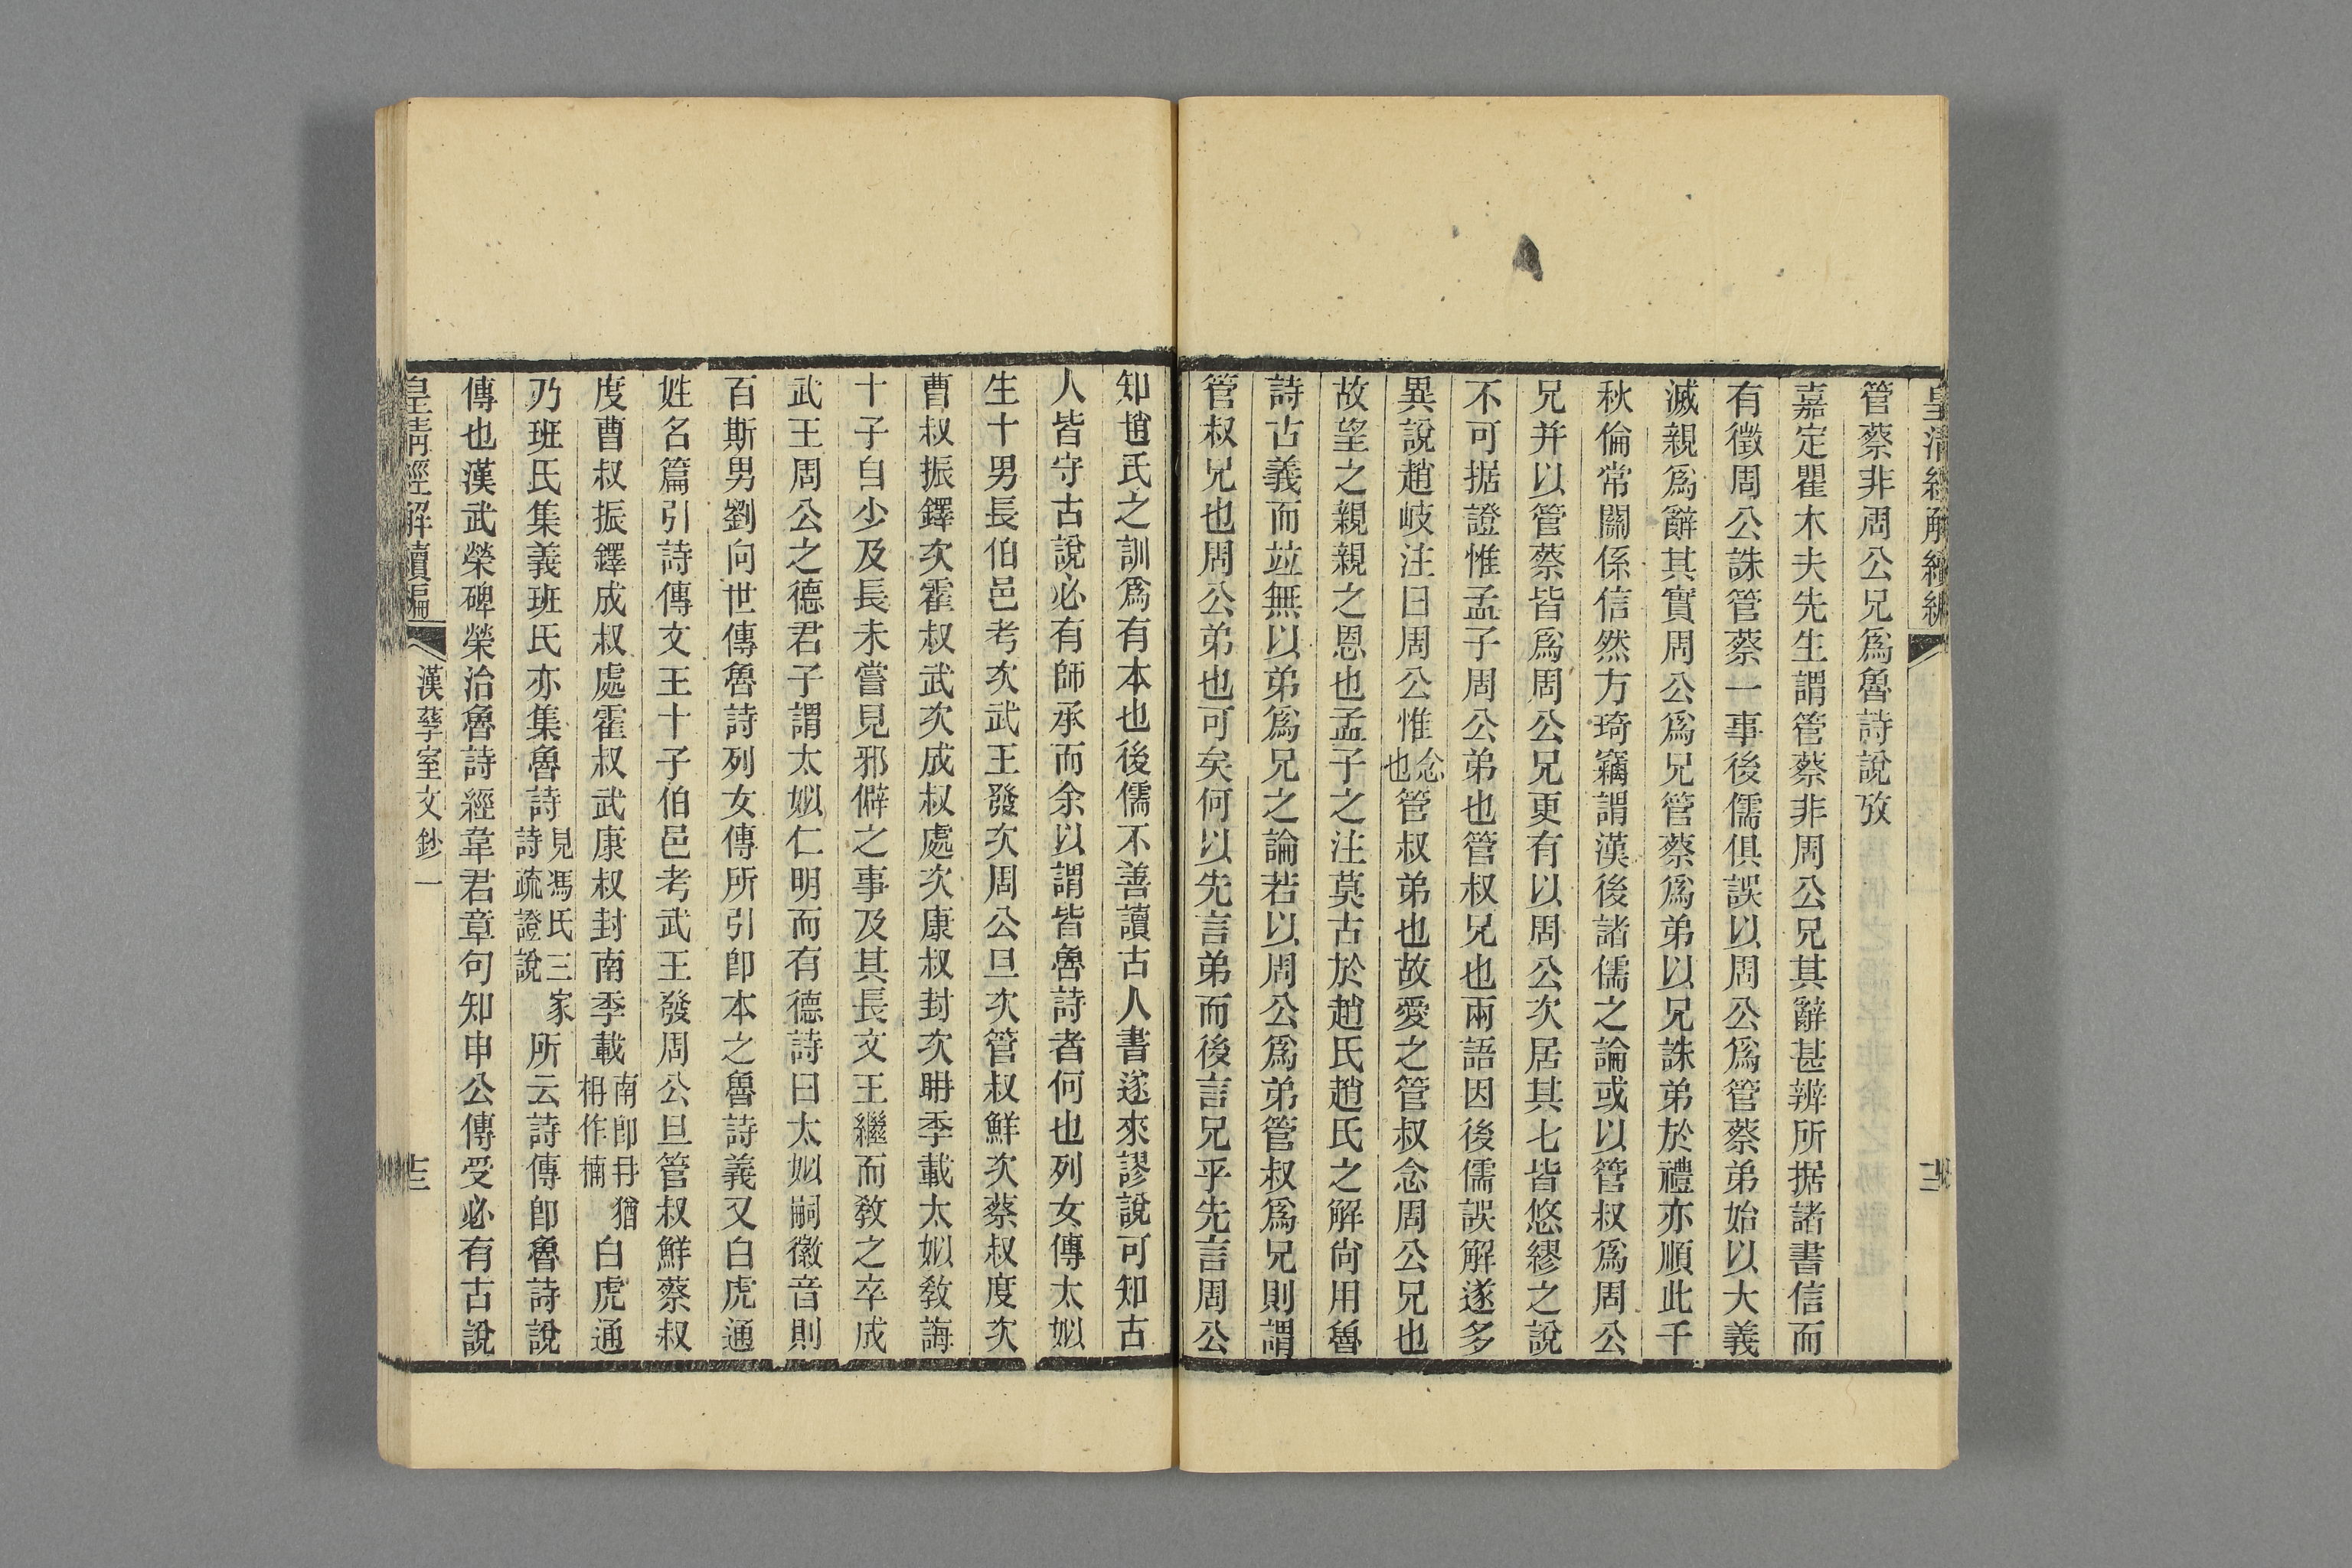 皇清經解續編
管蔡非周公兄爲魯詩說攷
嘉定瞿木夫先生謂管蔡非周公兄其辭甚辨所据諸書信而
有徵周公誅管蔡一事後儒俱誤以周公爲管蔡弟始以大義
滅親爲辭其實周公爲兄管蔡爲弟以兄誅弟於禮亦順此千
秋倫常關係信然方琦竊謂漢後諸儒之論或以管叔爲周公
兄并以管蔡皆爲周公兄更有以周公次居其七皆悠繆之說
不可据證惟孟子周公弟也管叔兄也兩語因後儒誤解遂多
異說趙岐注曰周公惟念也管叔弟也故愛之管叔念周公兄也
故望之親親之恩也孟子之注莫古於趙氏趙氏之解尙用魯
詩古義而竝無以弟爲兄之論若以周公爲弟管叔爲兄則謂
管叔兄也周公弟也可矣何以先言弟而後言兄乎先言周公
知趙氏之訓爲有本也後儒不善讀古人書遂來謬說可知古
人皆守古說必有師承而余以謂皆魯詩者何也列女傳太姒
生十男長伯邑考次武王發次周公旦次管叔鮮次蔡叔度次
曹叔振鐸次霍叔武次成叔處次康叔封次聃季載太姒敎誨
十子自少及長未嘗見邪僻之事及其長文王繼而敎之卒成
武王周公之德君子謂太姒仁明而有德詩曰太姒嗣徽音則
百斯男劉向世傳魯詩列女傳所引卽本之魯詩義又白虎通
姓名篇引詩傳文王十子伯邑考武王發周公旦管叔鮮蔡叔
度曹叔振鐸成叔處霍叔武康叔封南季載南卽冄猶枏作楠白虎通
乃班氏集義班氏亦集魯詩見馮氏三家詩疏證說所云詩傳卽魯詩說
傳也漢武榮碑榮治魯詩經韋君章句知申公傳受必有古說
皇淸經解續編
漢孳室文鈔一
十三